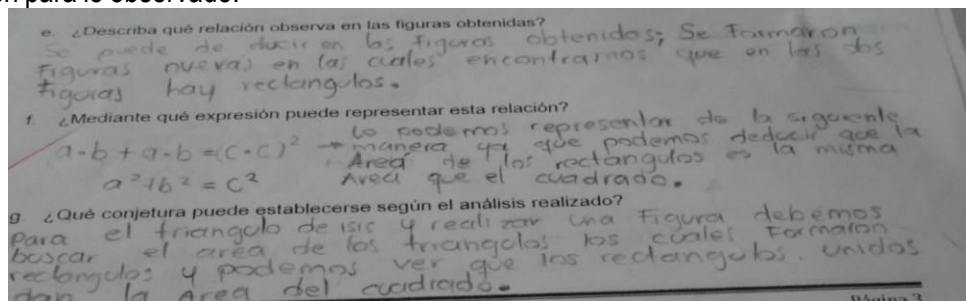 e. ¿Describa qué relación observa en las figuras obtenidas?
Se puede de ducir en las figuras obtenidas; Se Formaron
Figuras nuevas en las cuales encontramos que en las dos
Figuras hay rectangulos.
f. ¿Mediante qué expresión puede representar esta relación?
Lo podemos representar de la siguiente
a·b + a·b = (c·c)² → manera ya que podemos deducir que la
Area de los rectangulos es la misma
a² + b² = c² Area que el cuadrado.
g. ¿Qué conjetura puede establecerse según el análisis realizado?
Para el triangulo de isis y realizar una Figura debemos
buscar el area de los triangulos los cuales Formaron
rectangulos y podemos ver que los rectangulos. unidos
dan la Area del cuadrado.
Página 3